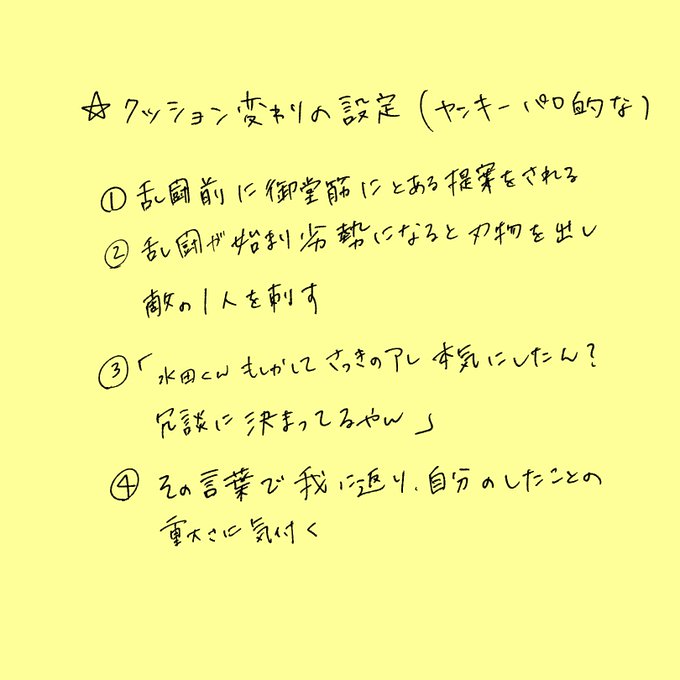 ☆ クッション変わりの設定 (ヤンキーパロ的な)
① 乱闘前に御堂筋にとある提案をされる
② 乱闘が始まり劣勢になると刃物を出し
敵の1人を刺す
③ 「水田くんもしかしてさっきのアレ本気にしたん?
冗談に決まってるやん」
④ その言葉で我に返り、自分のしたことの
重大さに気付く